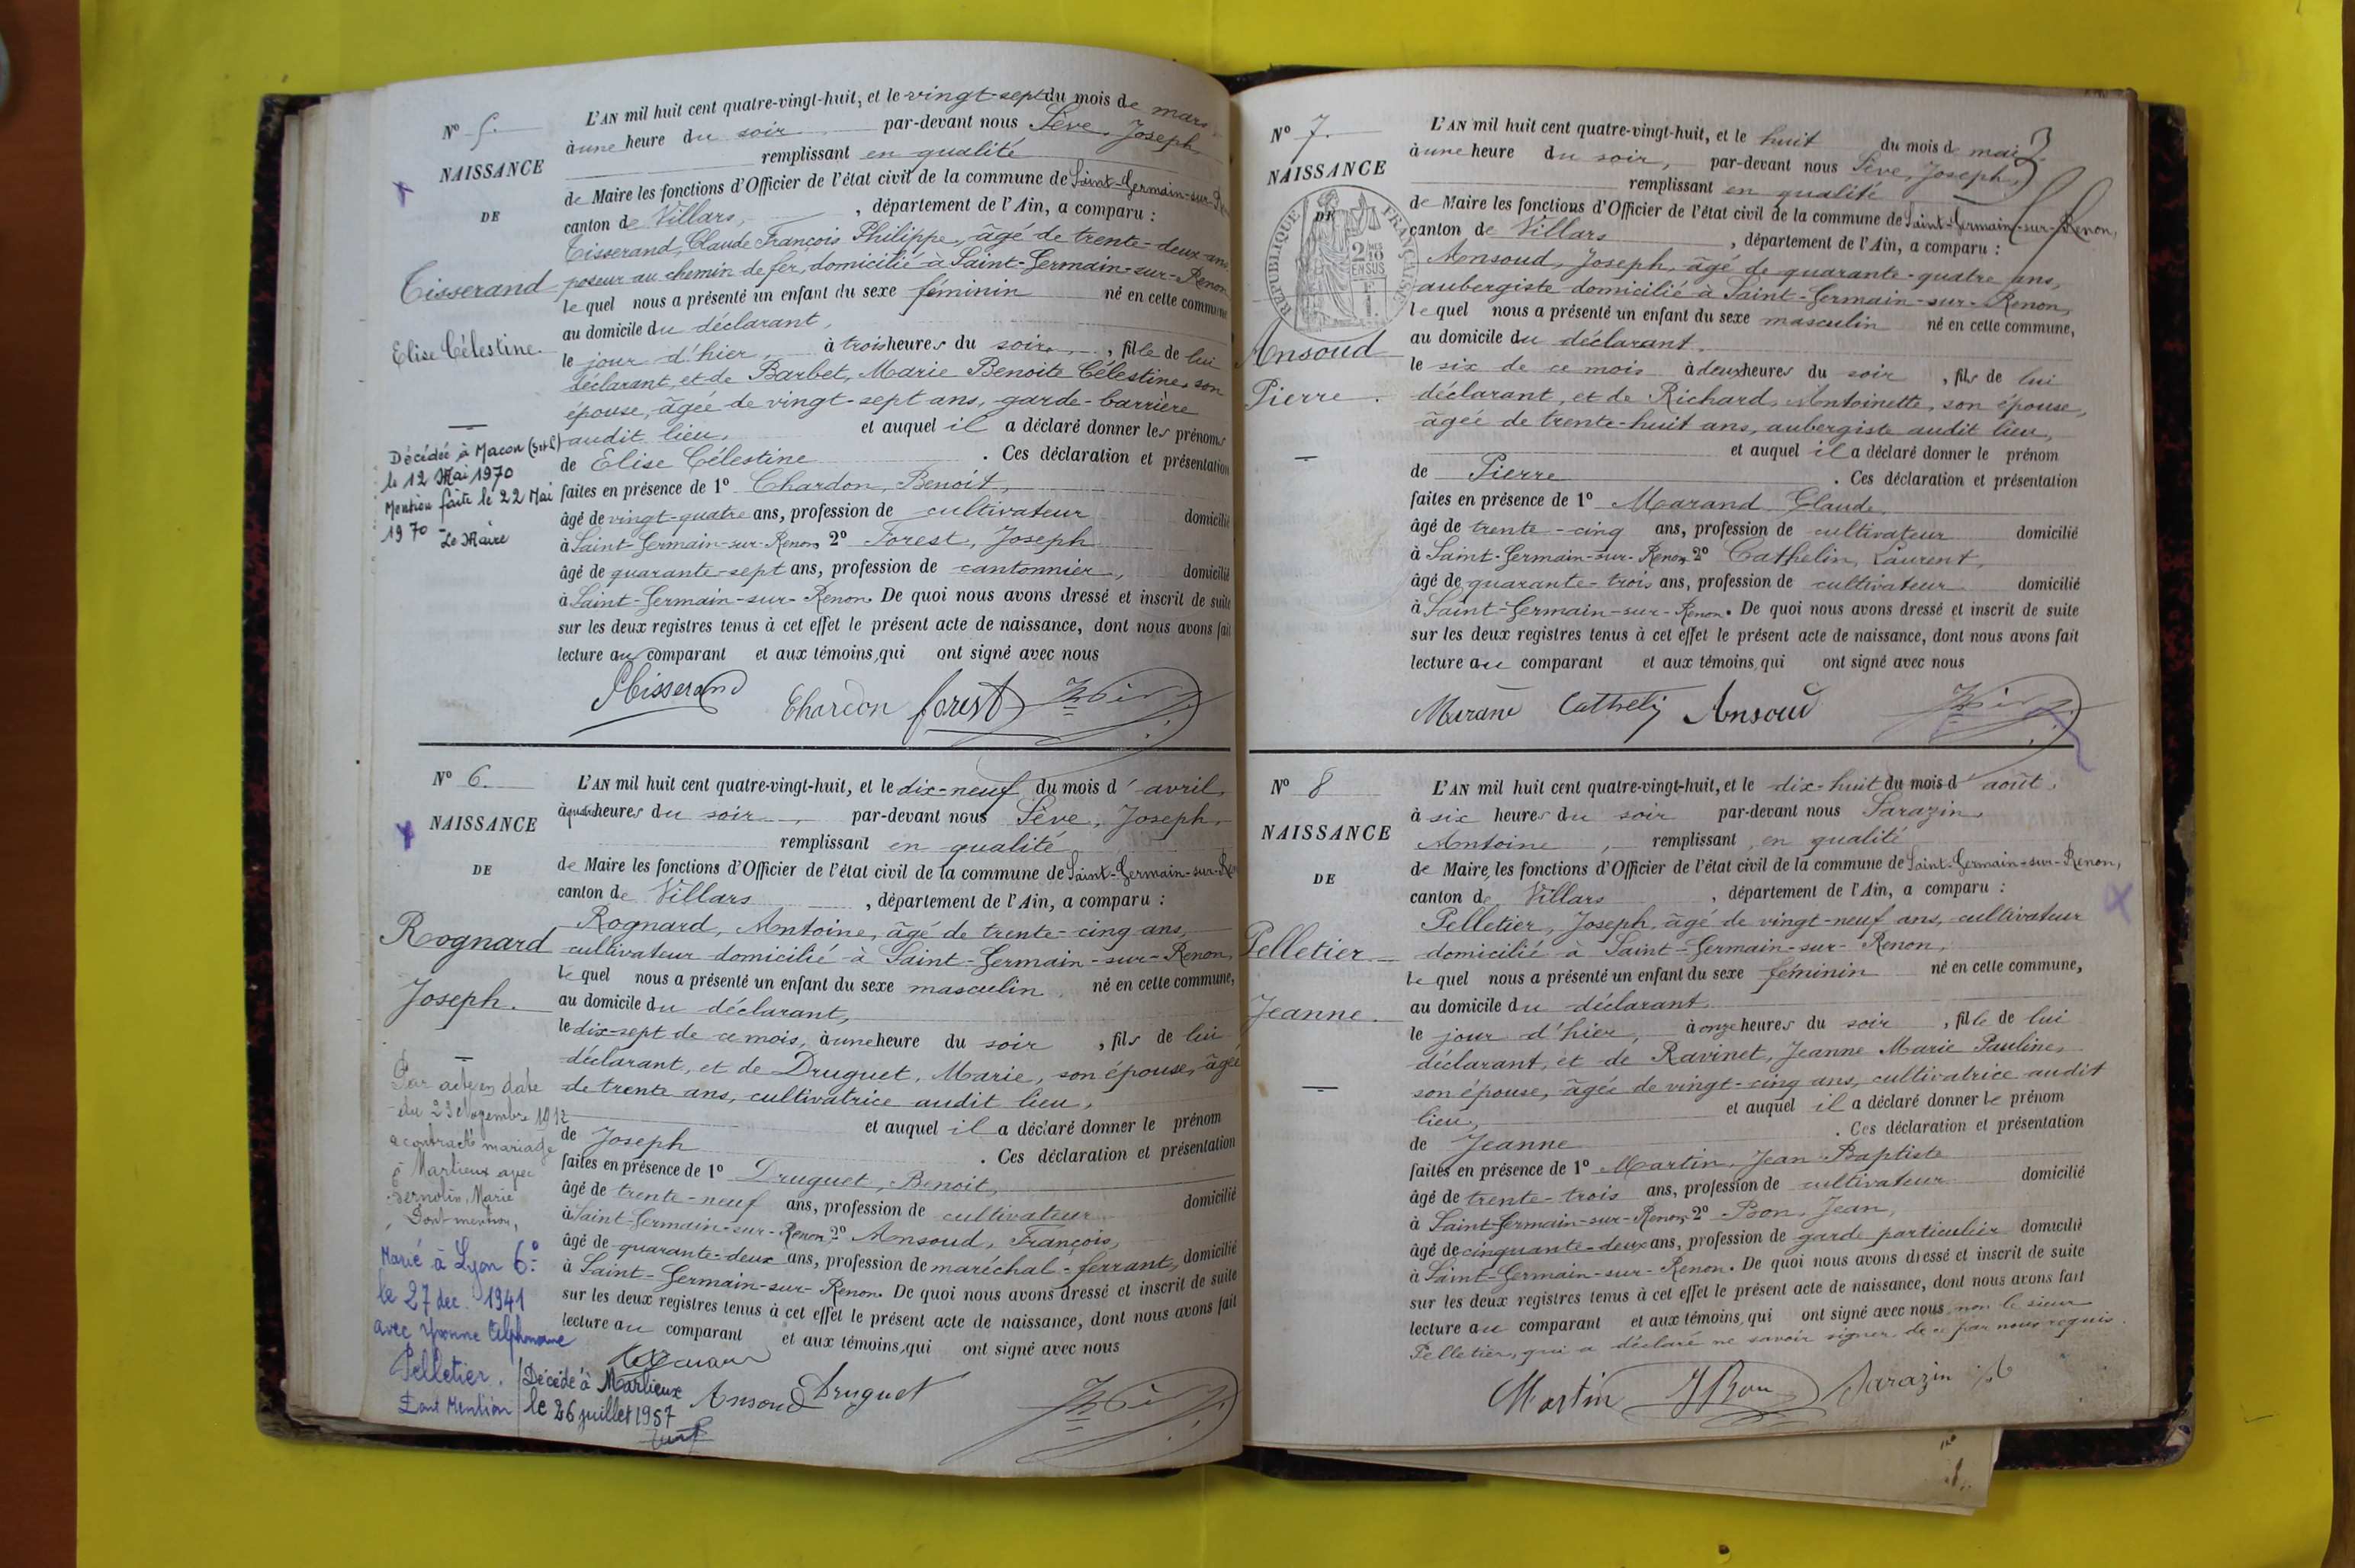 N° 5.
NAISSANCE
DE
Tisserand
Elise Célestine.
Décédée à Macon (S et L)
le 12 Mai 1970
Mention faite le 22 Mai
1970 -
Le Maire
L'AN mil huit cent quatre-vingt-huit, et le vingt-sept du mois de mars
à une heure du soir par-devant nous Sève, Joseph,
remplissant en qualité
de Maire les fonctions d'Officier de l'état civil de la commune de Saint-Germain-sur-
canton de Villars, , département de l'Ain, a comparu :
Tisserand, Claude François Philippe, âgé de trente-deux ans,
poseur au chemin de fer, domicilié à Saint-Germain-sur-Renon
lequel nous a présenté un enfant du sexe féminin né en cette commune
au domicile du déclarant,
le jour d'hier, à trois heures du soir, , fille de lui
déclarant, et de Barbet, Marie Benoite Célestine, son
épouse, âgée de vingt-sept ans, garde-barrière
audit lieu, et auquel il a déclaré donner les prénoms
de Elise Célestine . Ces déclaration et présentation
faites en présence de 1° Chardon, Benoit,
âgé de vingt-quatre ans, profession de cultivateur domicilié
à Saint-Germain-sur-Renon, 2° Forest, Joseph
âgé de quarante-sept ans, profession de cantonnier, domicilié
à Saint-Germain-sur-Renon. De quoi nous avons dressé et inscrit de suite
sur les deux registres tenus à cet effet le présent acte de naissance, dont nous avons fait
lecture au comparant et aux témoins, qui ont signé avec nous
Tisserand Chardon forest
N° 6.
NAISSANCE
DE
Rognard
Joseph.
Par acte en date
du 23 Novembre 1912
a contracté mariage
à Marlieux avec
Marie
Dont mention,
Marié à Lyon 6°
le 27 déc. 1941
avec Yvonne Alphonsine
Pelletier.
Dont Mention
Décédé à Marlieux
le 26 juillet 1957
L'AN mil huit cent quatre-vingt-huit, et le dix-neuf du mois d'avril,
à quatre heures du soir, par-devant nous Sève, Joseph,
remplissant en qualité
de Maire les fonctions d'Officier de l'état civil de la commune de Saint-Germain-sur-Re
canton de Villars , département de l'Ain, a comparu :
Rognard, Antoine, âgé de trente-cinq ans,
cultivateur domicilié à Saint-Germain-sur-Renon,
lequel nous a présenté un enfant du sexe masculin né en cette commune,
au domicile du déclarant,
le dix-sept de ce mois, à une heure du soir , fils de lui
déclarant, et de Druguet, Marie, son épouse, âgée
de trente ans, cultivatrice audit lieu,
et auquel il a déclaré donner le prénom
de Joseph . Ces déclaration et présentation
faites en présence de 1° Druguet, Benoit,
âgé de trente-neuf ans, profession de cultivateur domicilié
à Saint-Germain-sur-Renon, 2° Ansoud, François,
âgé de quarante-deux ans, profession de maréchal-ferrant, domicilié
à Saint-Germain-sur-Renon. De quoi nous avons dressé et inscrit de suite
sur les deux registres tenus à cet effet le présent acte de naissance, dont nous avons fait
lecture au comparant et aux témoins, qui ont signé avec nous
Ansoud Druguet
3
N° 7.
NAISSANCE
DE
RÉPUBLIQUE FRANÇAISE
2/10 EN SUS
Ansoud
Pierre.
L'AN mil huit cent quatre-vingt-huit, et le huit du mois d mai
à une heure du soir, par-devant nous Sève, Joseph,
remplissant en qualité
de Maire les fonctions d'Officier de l'état civil de la commune de Saint-Germain-sur-Renon,
canton de Villars , département de l'Ain, a comparu :
Ansoud, Joseph, âgé de quarante-quatre ans,
aubergiste domicilié à Saint-Germain-sur-Renon,
lequel nous a présenté un enfant du sexe masculin né en cette commune,
au domicile du déclarant,
le six de ce mois à deux heures du soir , fils de lui
déclarant, et de Richard, Antoinette, son épouse,
âgée de trente-huit ans, aubergiste audit lieu,
et auquel il a déclaré donner le prénom
de Pierre . Ces déclaration et présentation
faites en présence de 1° Marand Claude,
âgé de trente-cinq ans, profession de cultivateur domicilié
à Saint-Germain-sur-Renon, 2° Cathelin, Laurent,
âgé de quarante-trois ans, profession de cultivateur domicilié
à Saint-Germain-sur-Renon. De quoi nous avons dressé et inscrit de suite
sur les deux registres tenus à cet effet le présent acte de naissance, dont nous avons fait
lecture au comparant et aux témoins, qui ont signé avec nous
Marand Ansoud
N° 8
NAISSANCE
DE
Pelletier
Jeanne.
L'AN mil huit cent quatre-vingt-huit, et le dix-huit du mois d'août,
à six heures du soir par-devant nous Sarazin,
Antoine, remplissant en qualité
de Maire les fonctions d'Officier de l'état civil de la commune de Saint-Germain-sur-Renon,
canton de Villars , département de l'Ain, a comparu :
Pelletier, Joseph, âgé de vingt-neuf ans, cultivateur
domicilié à Saint-Germain-sur-Renon,
lequel nous a présenté un enfant du sexe féminin né en cette commune,
au domicile du déclarant,
le jour d'hier, à onze heures du soir , fille de lui
déclarant, et de Ravinet, Jeanne Marie Pauline,
son épouse, âgée de vingt-cinq ans, cultivatrice audit
lieu, et auquel il a déclaré donner le prénom
de Jeanne . Ces déclaration et présentation
faites en présence de 1° Martin, Jean Baptiste
âgé de trente-trois ans, profession de cultivateur domicilié
à Saint-Germain-sur-Renon, 2° Bon, Jean,
âgé de cinquante-deux ans, profession de garde particulier domicilié
à Saint-Germain-sur-Renon. De quoi nous avons dressé et inscrit de suite
sur les deux registres tenus à cet effet le présent acte de naissance, dont nous avons fait
lecture au comparant et aux témoins, qui ont signé avec nous non le sieur
Pelletier, qui a déclaré ne savoir signer de ce par nous requis.
Martin Bon Sarazin